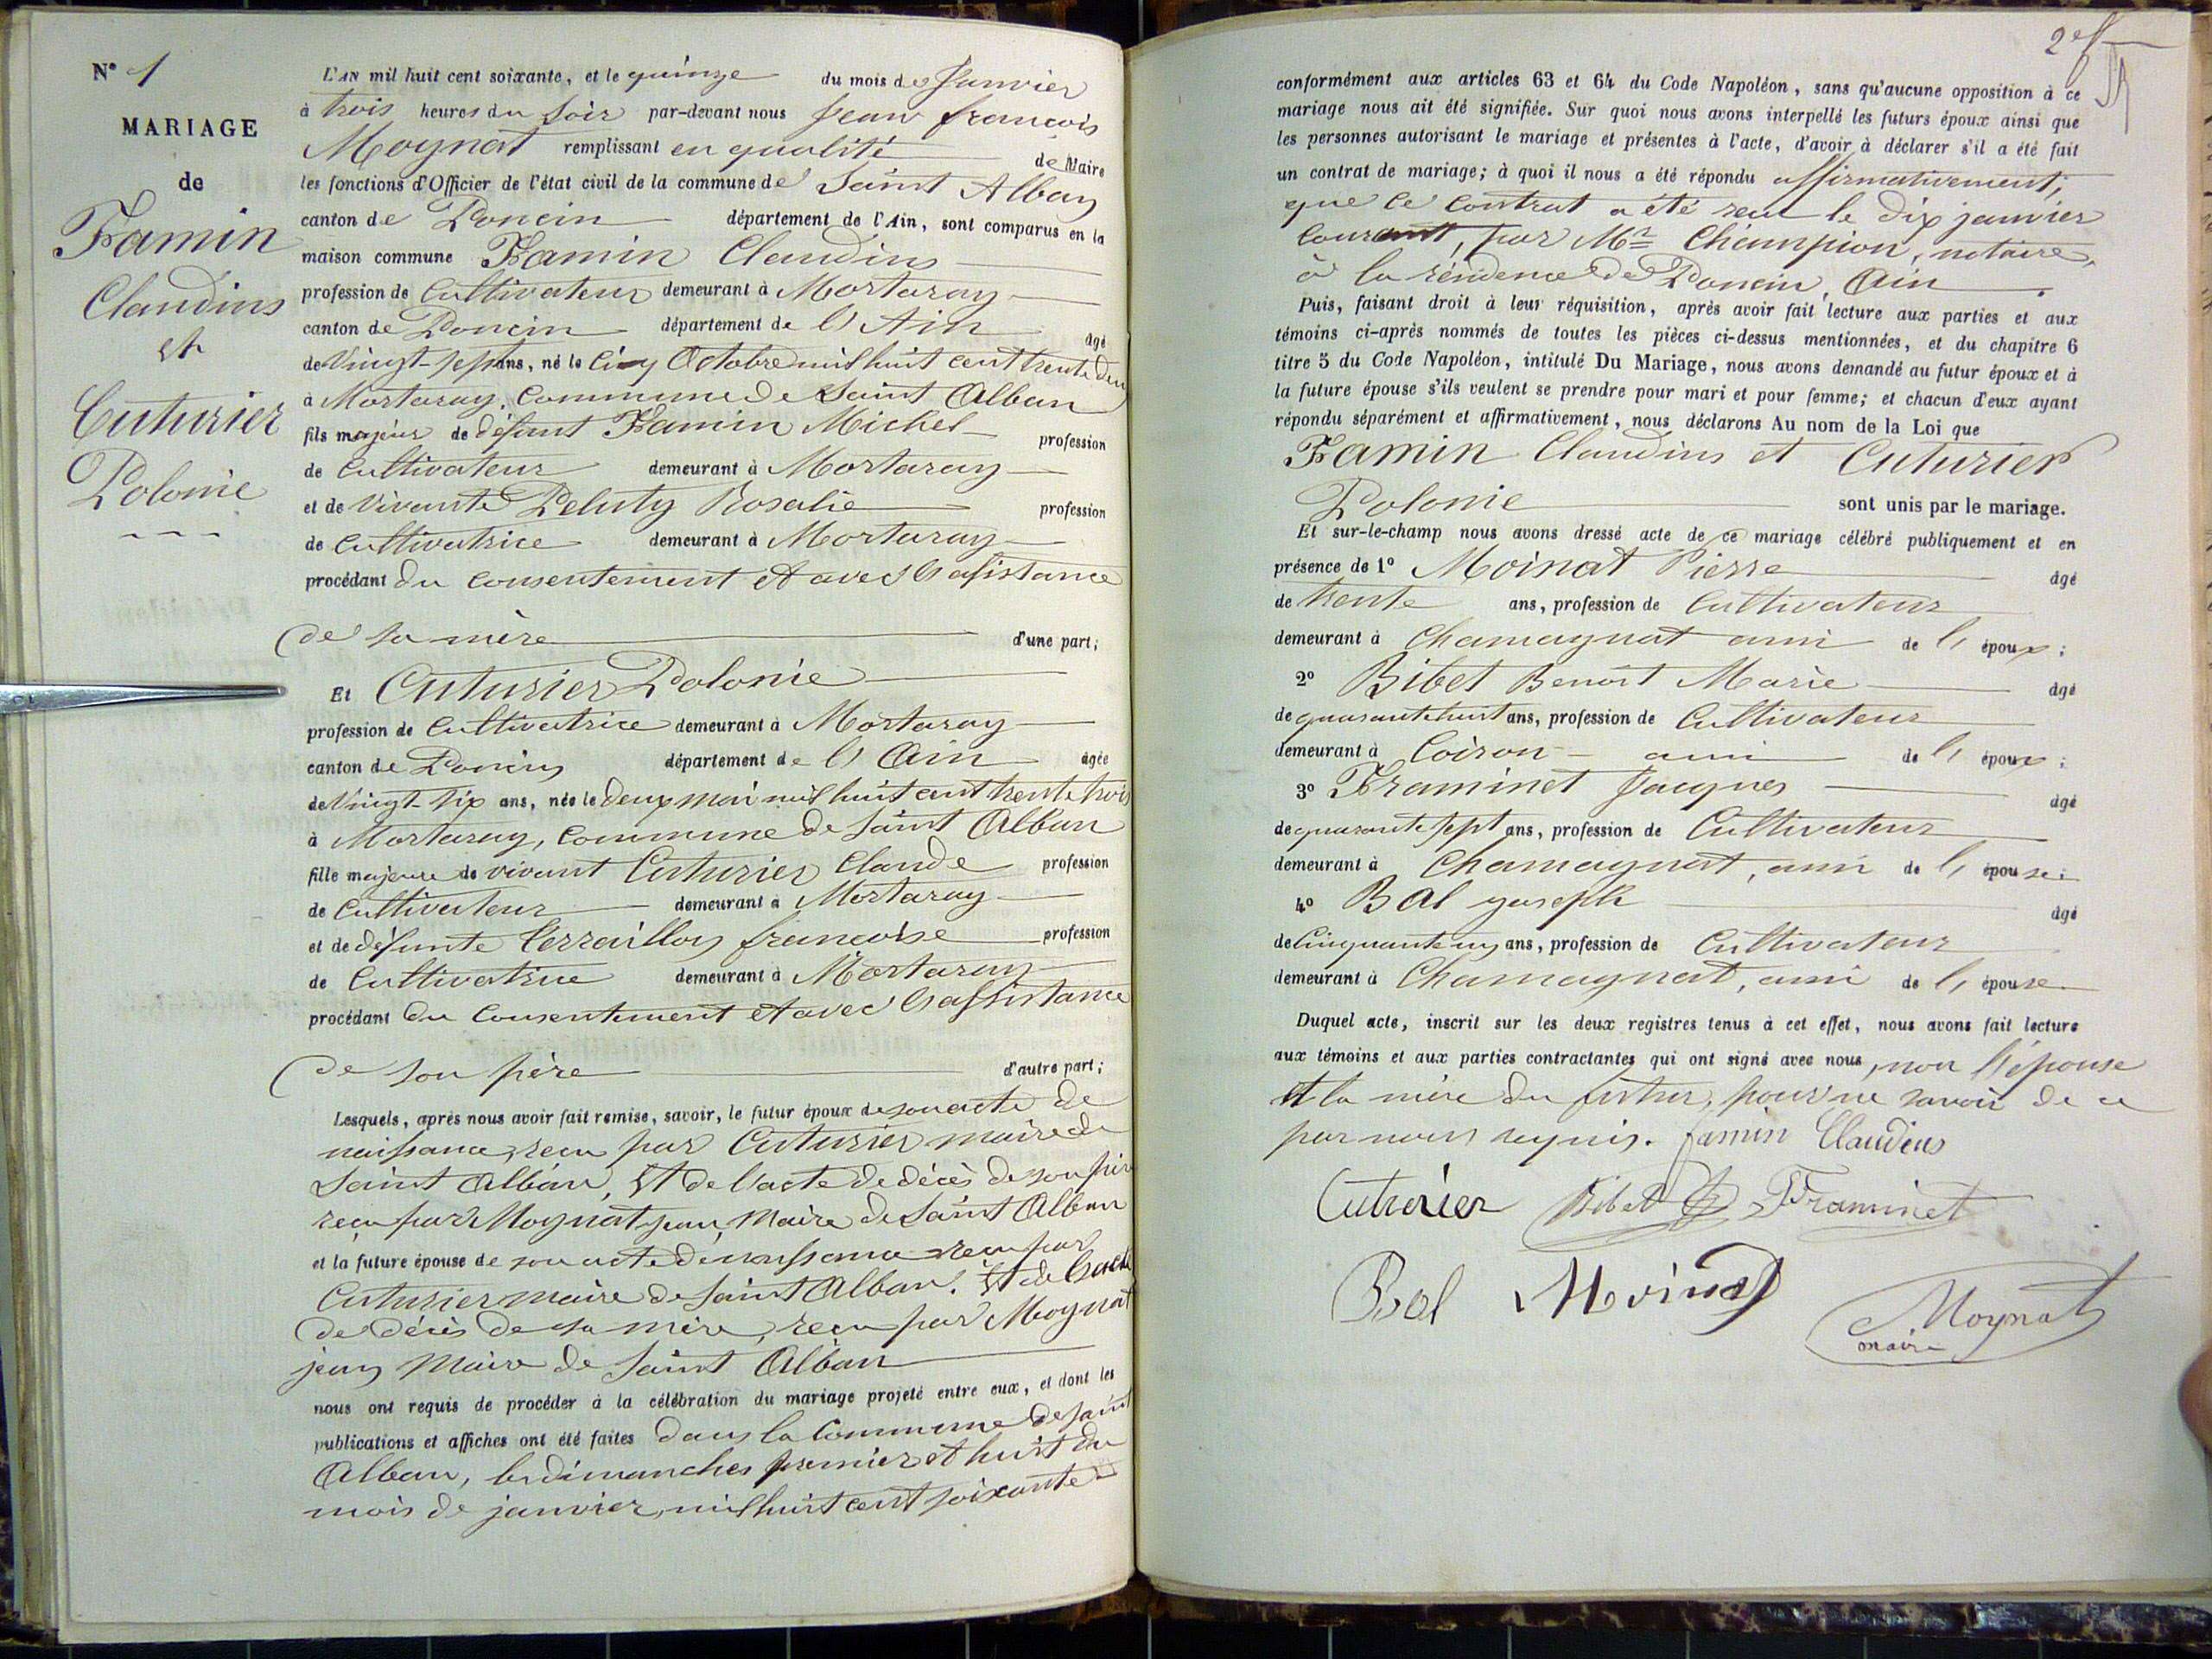 N° 1
MARIAGE
de
Famin
Claudius
et
Cuturier
Polonie
L'AN mil huit cent soixante, et le quinze du mois de Janvier
à trois heures du soir par-devant nous Jean françois
Moynat remplissant en qualité de Maire
les fonctions d'Officier de l'état civil de la commune de Saint Alban
canton de Poncin département de l'Ain, sont comparus en la
maison commune Famin Claudius
profession de Cultivateur demeurant à Mortaray
canton de Poncin département de l'Ain âgé
de vingt-sept ans, né le cinq Octobre mil huit cent trente deux
à Mortaray, commune de Saint Alban
fils majeur de défunt Famin Michel profession
de Cultivateur demeurant à Mortaray
et de vivante Peluty Rosalie profession
de Cultivatrice demeurant à Mortaray
procédant du consentement et avec l'assistance
de sa mère d'une part;
Et Cuturier Polonie
profession de Cultivatrice demeurant à Mortaray
canton de Poncin département de l'Ain âgée
de vingt-six ans, née le deux mai mil huit cent trente trois
à Mortaray, commune de Saint Alban
fille majeure de vivant Cuturier Claude profession
de Cultivateur demeurant à Mortaray
et de défunte Verraillon francoise profession
de Cultivatrice demeurant à Mortaray
procédant du consentement et avec l'assistance
de son père d'autre part;
Lesquels, après nous avoir fait remise, savoir, le futur époux de son acte de
naissance, reçu par Cuturier maire de
Saint Alban, Et de l'acte de décès de son père
reçu par Moynat jean, Maire de Saint Alban
et la future épouse de son acte de naissance reçu par
Cuturier maire de Saint Alban. Et de l'acte
de décès de sa mère, reçu par Moynat
jean Maire de Saint Alban
nous ont requis de procéder à la célébration du mariage projeté entre eux, et dont les
publications et affiches ont été faites dans la Commune de Saint
Alban, les dimanches premier et huit du
mois de janvier, mil huit cent soixante
2e f
conformément aux articles 63 et 64 du Code Napoléon, sans qu'aucune opposition à ce
mariage nous ait été signifiée. Sur quoi nous avons interpellé les futurs époux ainsi que
les personnes autorisant le mariage et présentes à l'acte, d'avoir à déclarer s'il a été fait
un contrat de mariage; à quoi il nous a été répondu affirmativement,
que le contrat a été reçu le dix janvier
courant, par Mr Champion, notaire,
à la résidence de Poncin, Ain.
Puis, faisant droit à leur réquisition, après avoir fait lecture aux parties et aux
témoins ci-après nommés de toutes les pièces ci-dessus mentionnées, et du chapitre 6
titre 5 du Code Napoléon, intitulé Du Mariage, nous avons demandé au futur époux et à
la future épouse s'ils veulent se prendre pour mari et pour femme; et chacun d'eux ayant
répondu séparément et affirmativement, nous déclarons Au nom de la Loi que
Famin Claudius et Cuturier
Polonie sont unis par le mariage.
Et sur-le-champ nous avons dressé acte de ce mariage célébré publiquement et en
présence de 1° Moinat Pierre âgé
de trente ans, profession de Cultivateur
demeurant à Chamagnat ami de l'époux;
2° Bibet Benoit Marie âgé
de quarante huit ans, profession de Cultivateur
demeurant à Coiron ami de l'époux;
3° Framinet Jacques âgé
de quarante sept ans, profession de Cultivateur
demeurant à Chamagnat, ami de l'épouse;
4° Bal joseph âgé
de Cinquante un ans, profession de Cultivateur
demeurant à Chamagnat, ami de l'épouse
Duquel acte, inscrit sur les deux registres tenus à cet effet, nous avons fait lecture
aux témoins et aux parties contractantes qui ont signé avec nous, non l'épouse
et la mère du futur, pour ne savoir de ce
par nous requis. famin Claudius
Cuturier Bibet Framinet
Bal Moinat
Moynat
maire